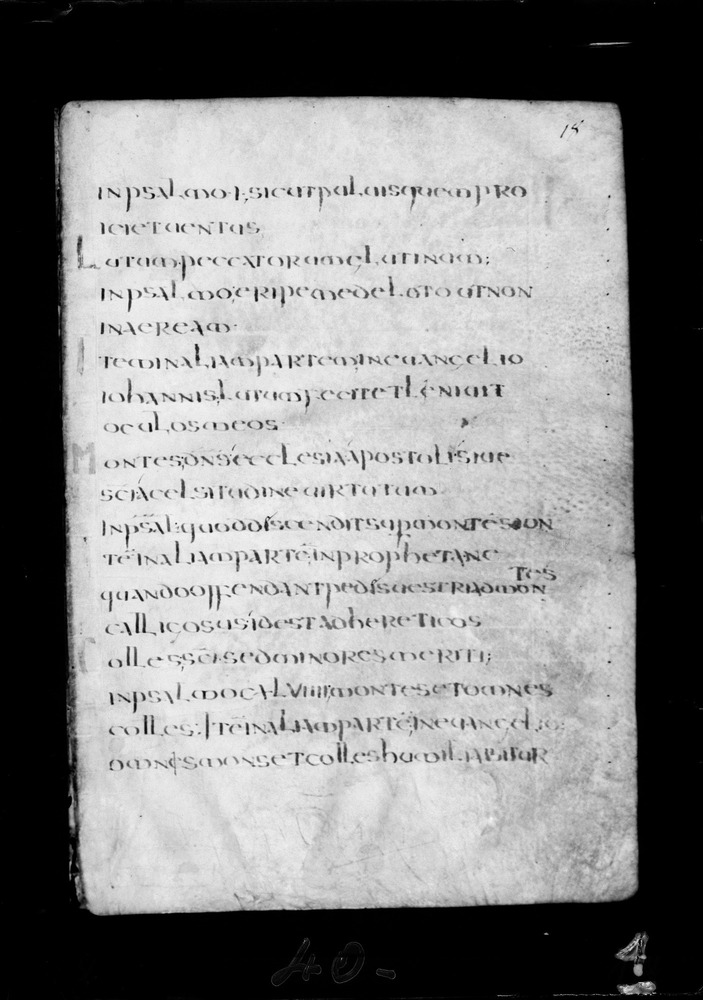 15
IN PSALMO·I·SICUT PULUIS QUEM PRO
ICIET UENTUS
LUTUM·PECCATORUM ÇLUTINUM;
IN PSALMO·ERIPE ME DE LUTO UT NON
INHEREAM·
ITEM IN ALIAM PARTEM IN EUANGELIO
IOHANNIS LUTUM FECIT ET LENIUIT
OCULOS MEOS
MONTES DNS ECCLESIA APOSTOLIS IUE
SCIA CELSITUDINE UIRTUTUM
IN PSAL·QUOD DISCENDIT SUP MONTE SION
TE IN ALIAM PARTE IN PROPHETA NE
TES
QUANDO OFFENDANT PEDIS UESTRI AD MON
CALLIGOSUS ID EST AD HERETICOS
COLLES SCI SED MINORES MERITI;
IN PSALMO CXLVIIII MONTES ET OMNES
COLLES·ITE IN ALIAM PARTE IN EUANGELIO:
OMNES MONS ET COLLES HUMILIABITUR
40-
4